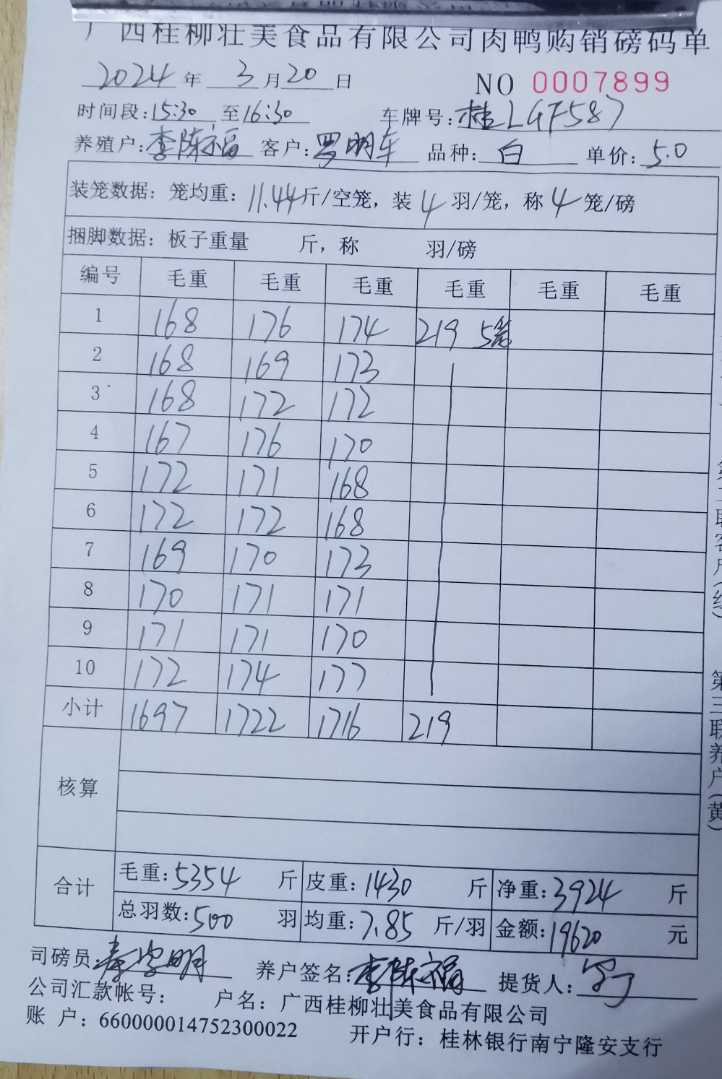 广西桂柳壮美食品有限公司肉鸭购销磅码单
2024年 3月20日 NO 0007899
时间段:15:30 至16:30 车牌号:桂LGF587
养殖户:李陈福 客户:罗明车 品种:白 单价:5.0
装笼数据:笼均重:11.44斤/空笼,装4羽/笼,称4笼/磅
捆脚数据:板子重量 斤,称 羽/磅
编号 毛重 毛重 毛重 毛重 毛重 毛重
1 168 176 174 219 5笼
2 168 169 173
3 168 172 172
4 167 176 170
5 172 171 168
6 172 172 168
7 169 170 173
8 170 171 171
9 171 171 170
10 172 174 177
小计 1697 1722 1716 219
核算
合计 毛重:5354 斤 皮重:1430 斤 净重:3924 斤
总羽数:500 羽 均重:7.85 斤/羽 金额:19620 元
司磅员: 养户签名:李陈福 提货人:
公司汇款帐号: 户名:广西桂柳壮美食品有限公司
账 户:660000014752300022 开户行:桂林银行南宁隆安支行
第三联养户(黄)